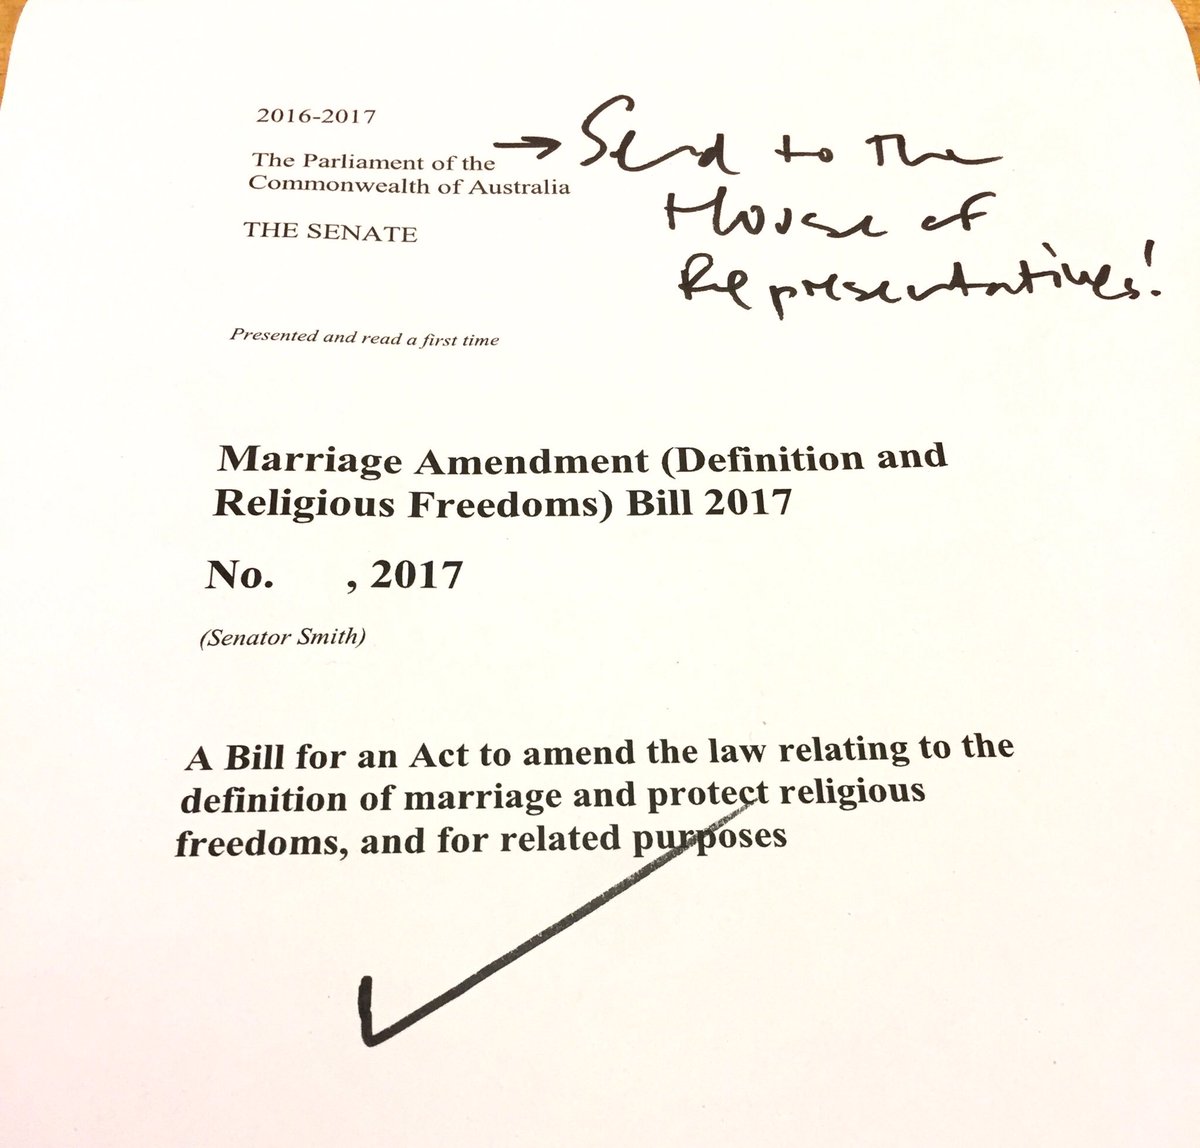 2016-2017
The Parliament of the
Commonwealth of Australia
THE SENATE
→ Send to the
House of
Representatives!
Presented and read a first time
Marriage Amendment (Definition and
Religious Freedoms) Bill 2017
No. , 2017
(Senator Smith)
A Bill for an Act to amend the law relating to the
definition of marriage and protect religious
freedoms, and for related purposes